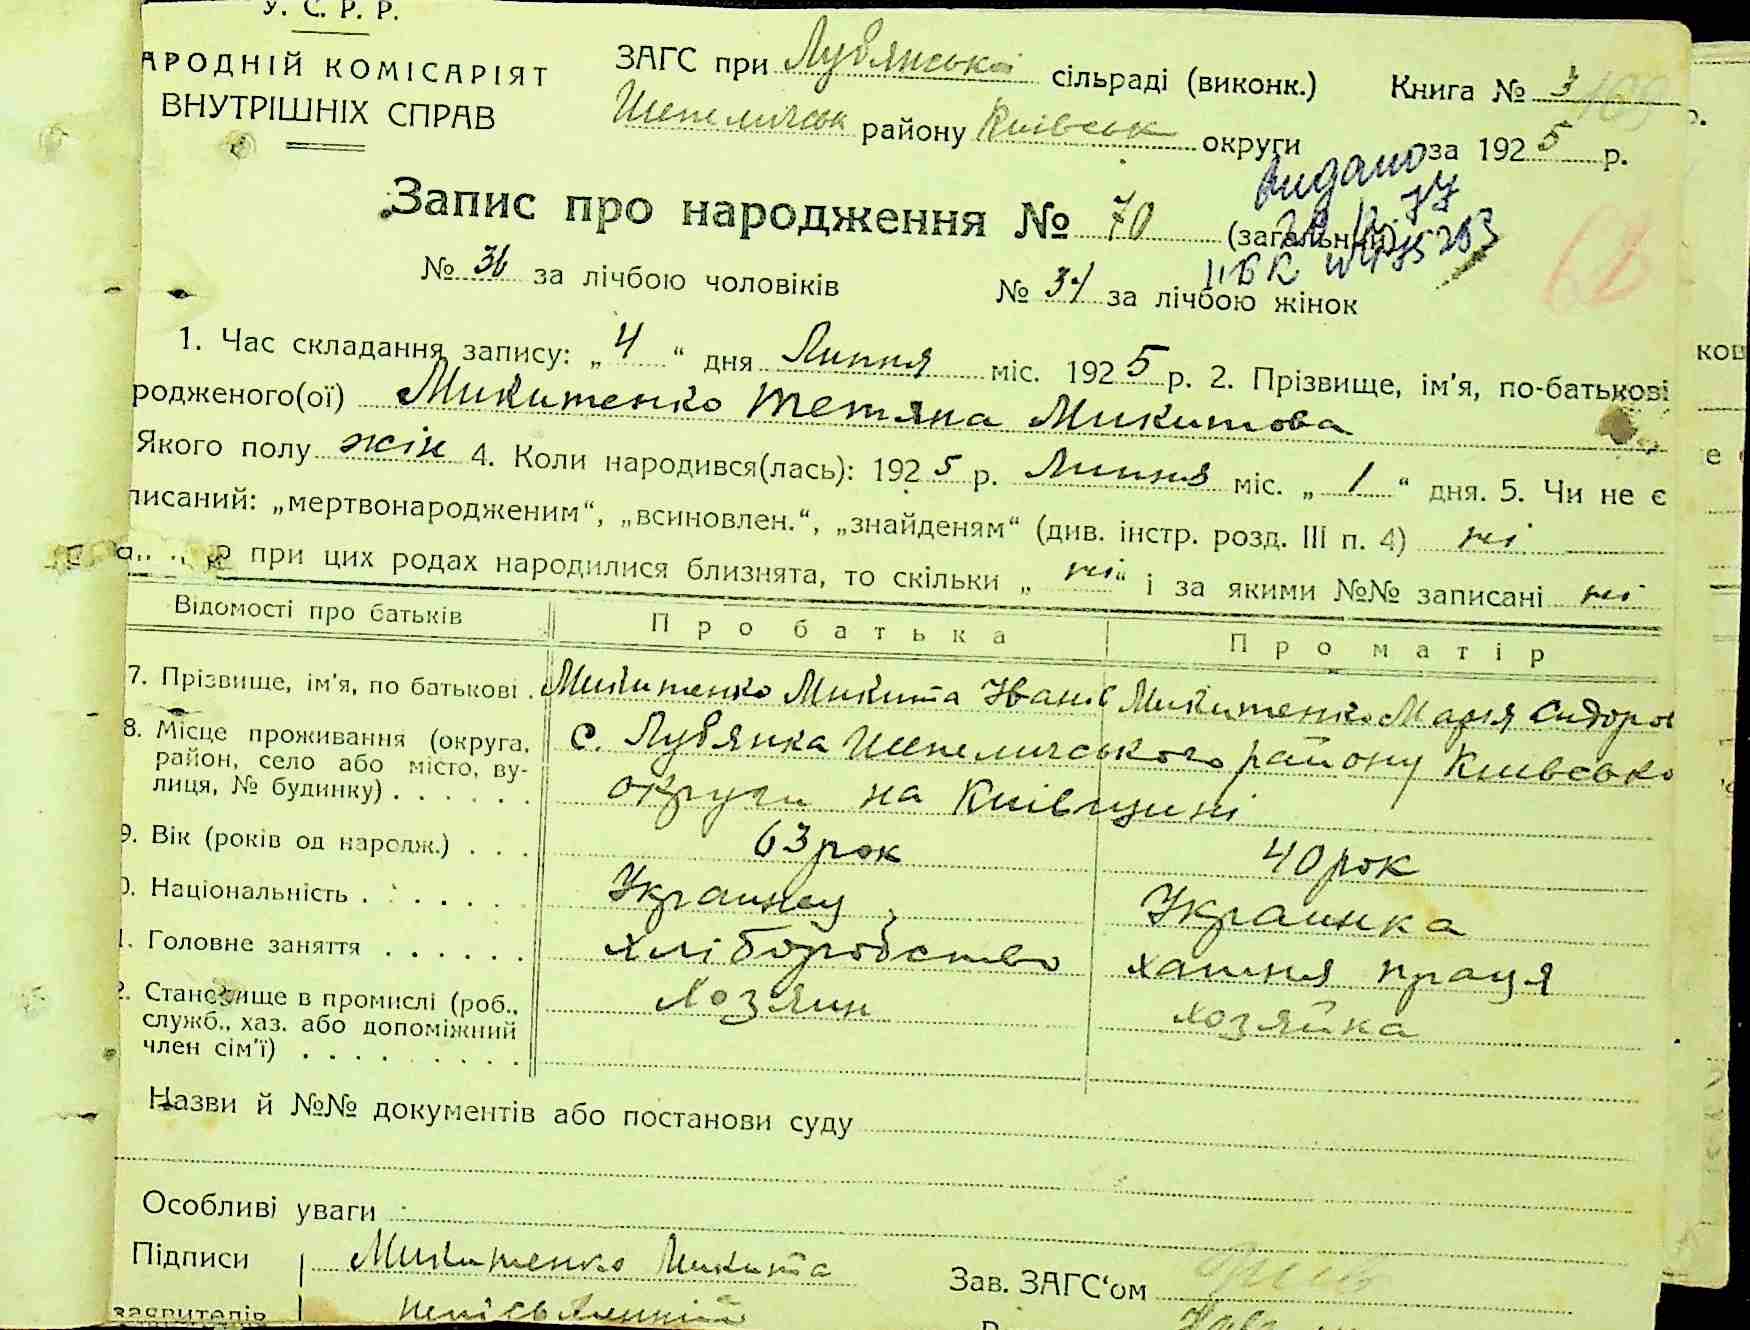 У. С. Р. Р.
АРОДНІЙ КОМІСАРІЯТ
ВНУТРІШНІХ СПРАВ
ЗАГС при Лубянській сільраді (виконк.) Книга № 3
Шепеличськ району Київськ округи за 1925 р.
видано
Запис про народження № 70 (загальний)
№ 36 за лічбою чоловіків № 34 за лічбою жінок
1. Час складання запису: „4“ дня Липня міс. 1925 р. 2. Прізвище, ім'я, по-батькові
родженого(ої) Микитенко Тетяна Микитова
Якого полу жін 4. Коли народився(лась): 1925 р. Липня міс. „1“ дня. 5. Чи не є
писаний: „мертвонародженим“, „всиновлен.“, „знайденям“ (див. інстр. розд. III п. 4) ні
при цих родах народилися близнята, то скільки „ні“ і за якими №№ записані ні
Відомості про батьків Про батька Про матір
7. Прізвище, ім'я, по батькові . Микитенко Микита Іванов Микитенко Марія Сидоров
8. Місце проживання (округа, район, село або місто, вулиця, № будинку) . . . . . . с. Лубянка Шепеличського району Киівсько
округи на Киівщині
9. Вік (років од народж.) . . . 63 рок 40 рок
0. Національність . . . . . . . Украинец Украинка
1. Головне заняття . . . . . . хліборобство хатня праця
2. Становище в промислі (роб., Хозяин хозяйка
служб., хаз. або допоміжний
член сім'ї) . . . . . . . . .
Назви й №№ документів або постанови суду
Особливі уваги
Підписи Микитенко Микита Зав. ЗАГС'ом
заявителів